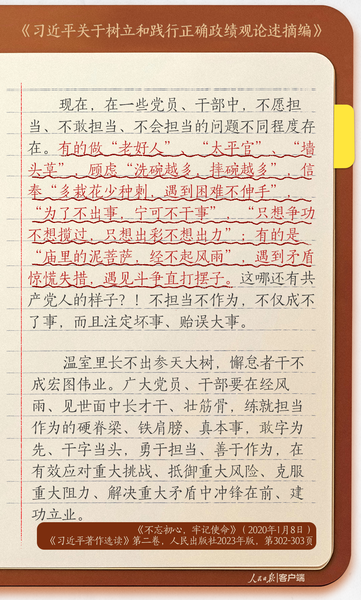 《习近平关于树立和践行正确政绩观论述摘编》
现在，在一些党员、干部中，不愿担
当、不敢担当、不会担当的问题不同程度存
在。有的做“老好人”、“太平官”、“墙
头草”，顾虑“洗碗越多，摔碗越多”，信
奉“多栽花少种刺，遇到困难不伸手”，
“为了不出事，宁可不干事”，“只想争功
不想揽过，只想出彩不想出力”；有的是
“庙里的泥菩萨，经不起风雨”，遇到矛盾
惊慌失措，遇见斗争直打摆子。这哪还有共
产党人的样子？！不担当不作为，不仅成不
了事，而且注定坏事、贻误大事。
温室里长不出参天大树，懈怠者干不
成宏图伟业。广大党员、干部要在经风
雨、见世面中长才干、壮筋骨，练就担当
作为的硬脊梁、铁肩膀、真本事，敢字为
先、干字当头，勇于担当、善于作为，在
有效应对重大挑战、抵御重大风险、克服
重大阻力、解决重大矛盾中冲锋在前、建
功立业。
《不忘初心，牢记使命》（2020年1月8日）
《习近平著作选读》第二卷，人民出版社2023年版，第302-303页
人民日报|客户端